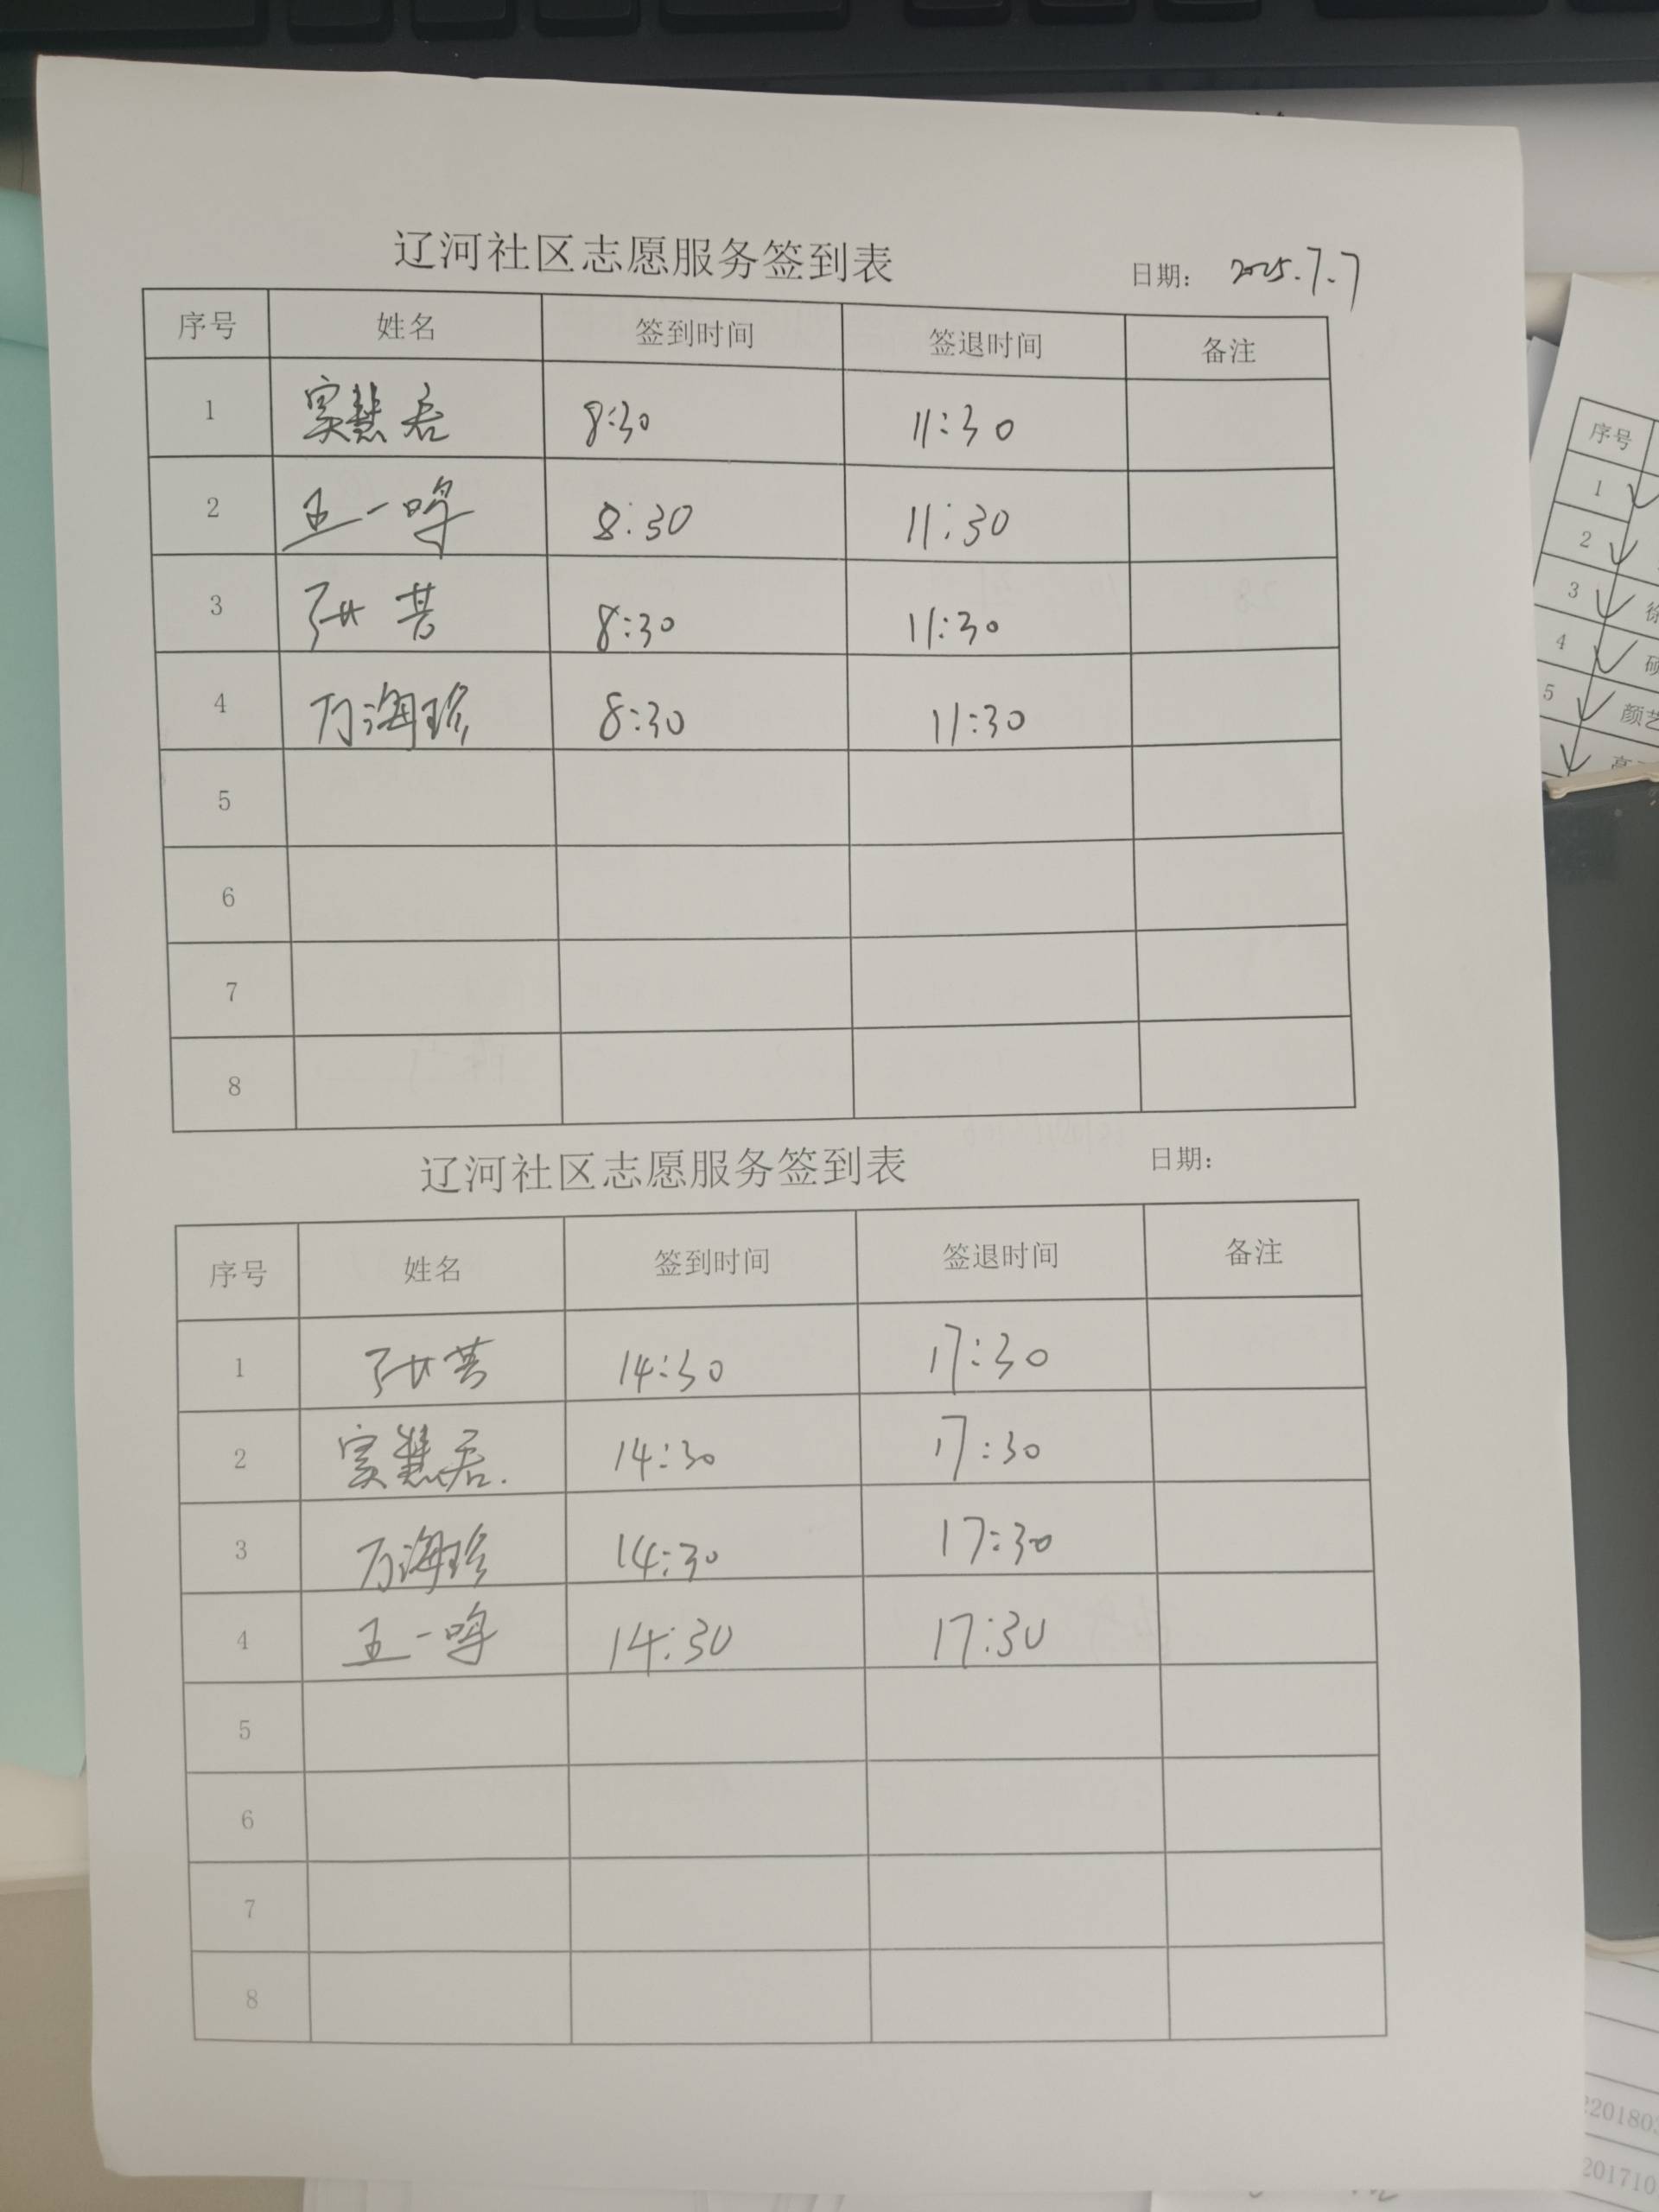 辽河社区志愿服务签到表 日期: 2025.7.7
序号 姓名 签到时间 签退时间 备注
1 窦慧君 8:30 11:30
2 王一鸣 8:30 11:30
3 8:30 11:30
4 万海珍 8:30 11:30
5
6
7
8
辽河社区志愿服务签到表 日期:
序号 姓名 签到时间 签退时间 备注
1 14:30 17:30
2 窦慧君. 14:30 17:30
3 万海珍 14:30 17:30
4 王一鸣 14:30 17:30
5
6
7
8
序号
1
2
3
4
5 颜艺
2201803
201710